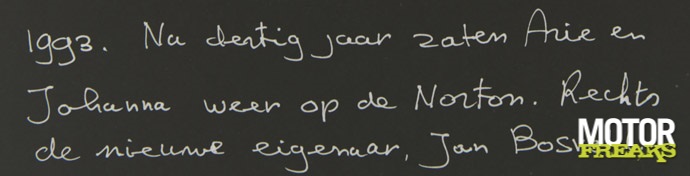 1993. Na dertig jaar zaten Arie en
Johanna weer op de Norton. Rechts
de nieuwe eigenaar, Jan
MOTOR
FREAKS